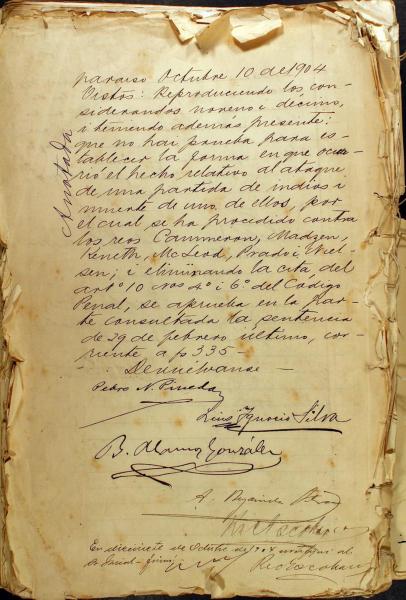 paraiso Octubre 10 de 1904
Vistos: Reproduciendo los con-
siderandos noveno i decimo,
i teniendo además presente:
que no hai prueba para es-
tablecer la forma en que ocu-
rrió el hecho relativo al ataque
de una partida de indios i
muerte de uno de ellos, por
el cual se ha procedido contra
los reos Cammeron, Madzen,
Keneth, McLeod, Prado i Niel-
sen; i eliminando la cita del
art.º 10 Nos 4º i 6º del Codigo
Penal, se aprueba en la par-
te consultada la sentencia
de 29 de febrero último, cor-
riente a fs 335-
Devuélvanse-
Anotada
Pedro N. Pineda
Luis Ignacio Silva
B. Alamos González
A.
En diecisiete de Octubre de